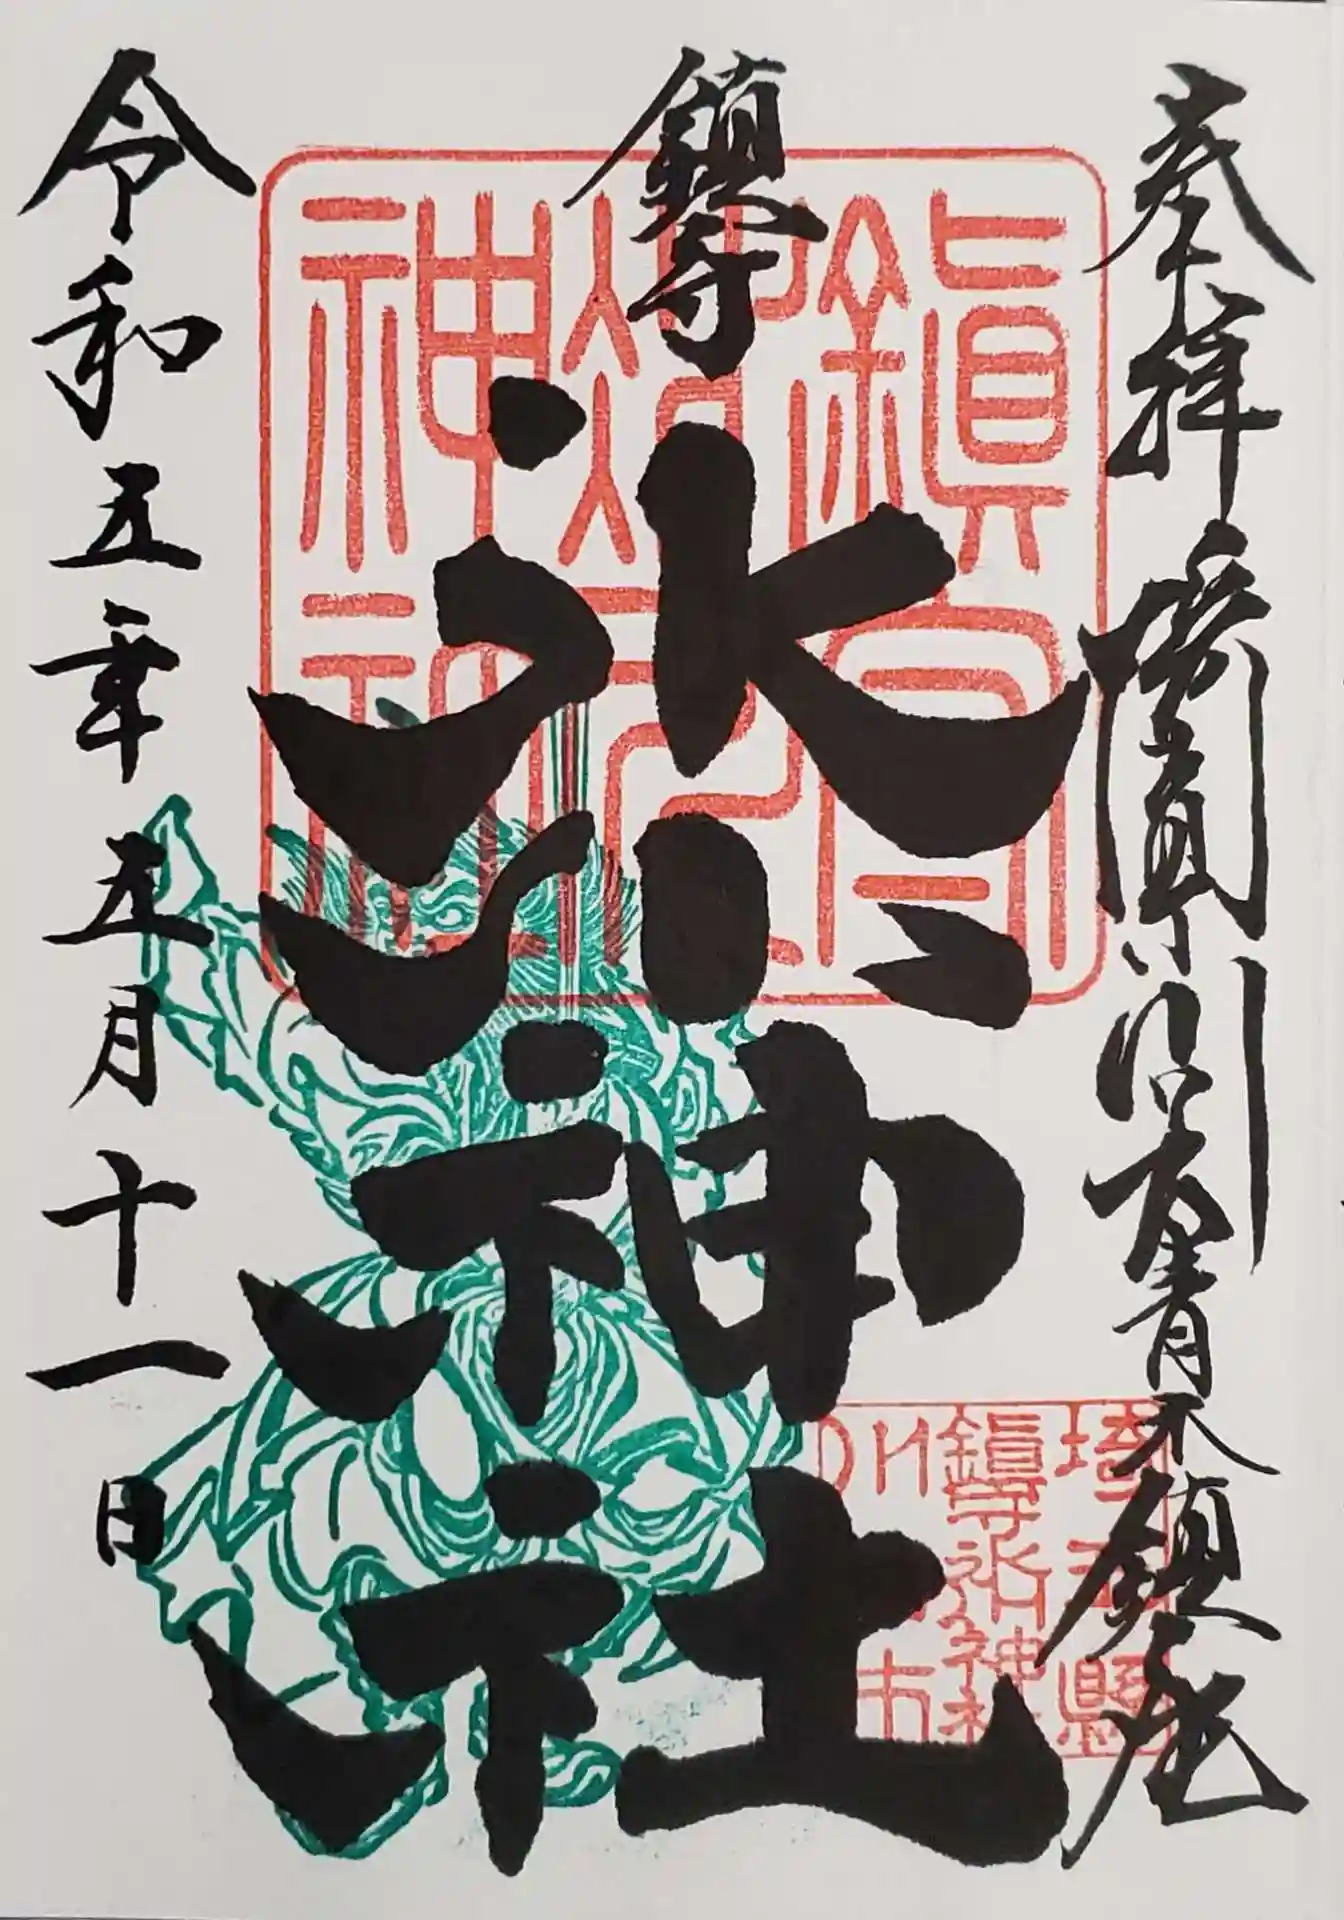 奉拝 埼玉縣川口市青木鎮座
鎮守
氷川神社
令和五年五月十一日
鎮守
氷川
神社
埼玉縣
鎮守氷川神社
川口市